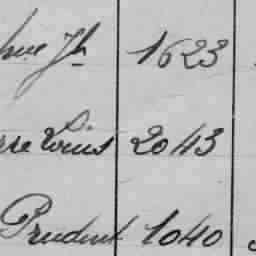 Jh 1623
Louis 2043
Prudent 1040